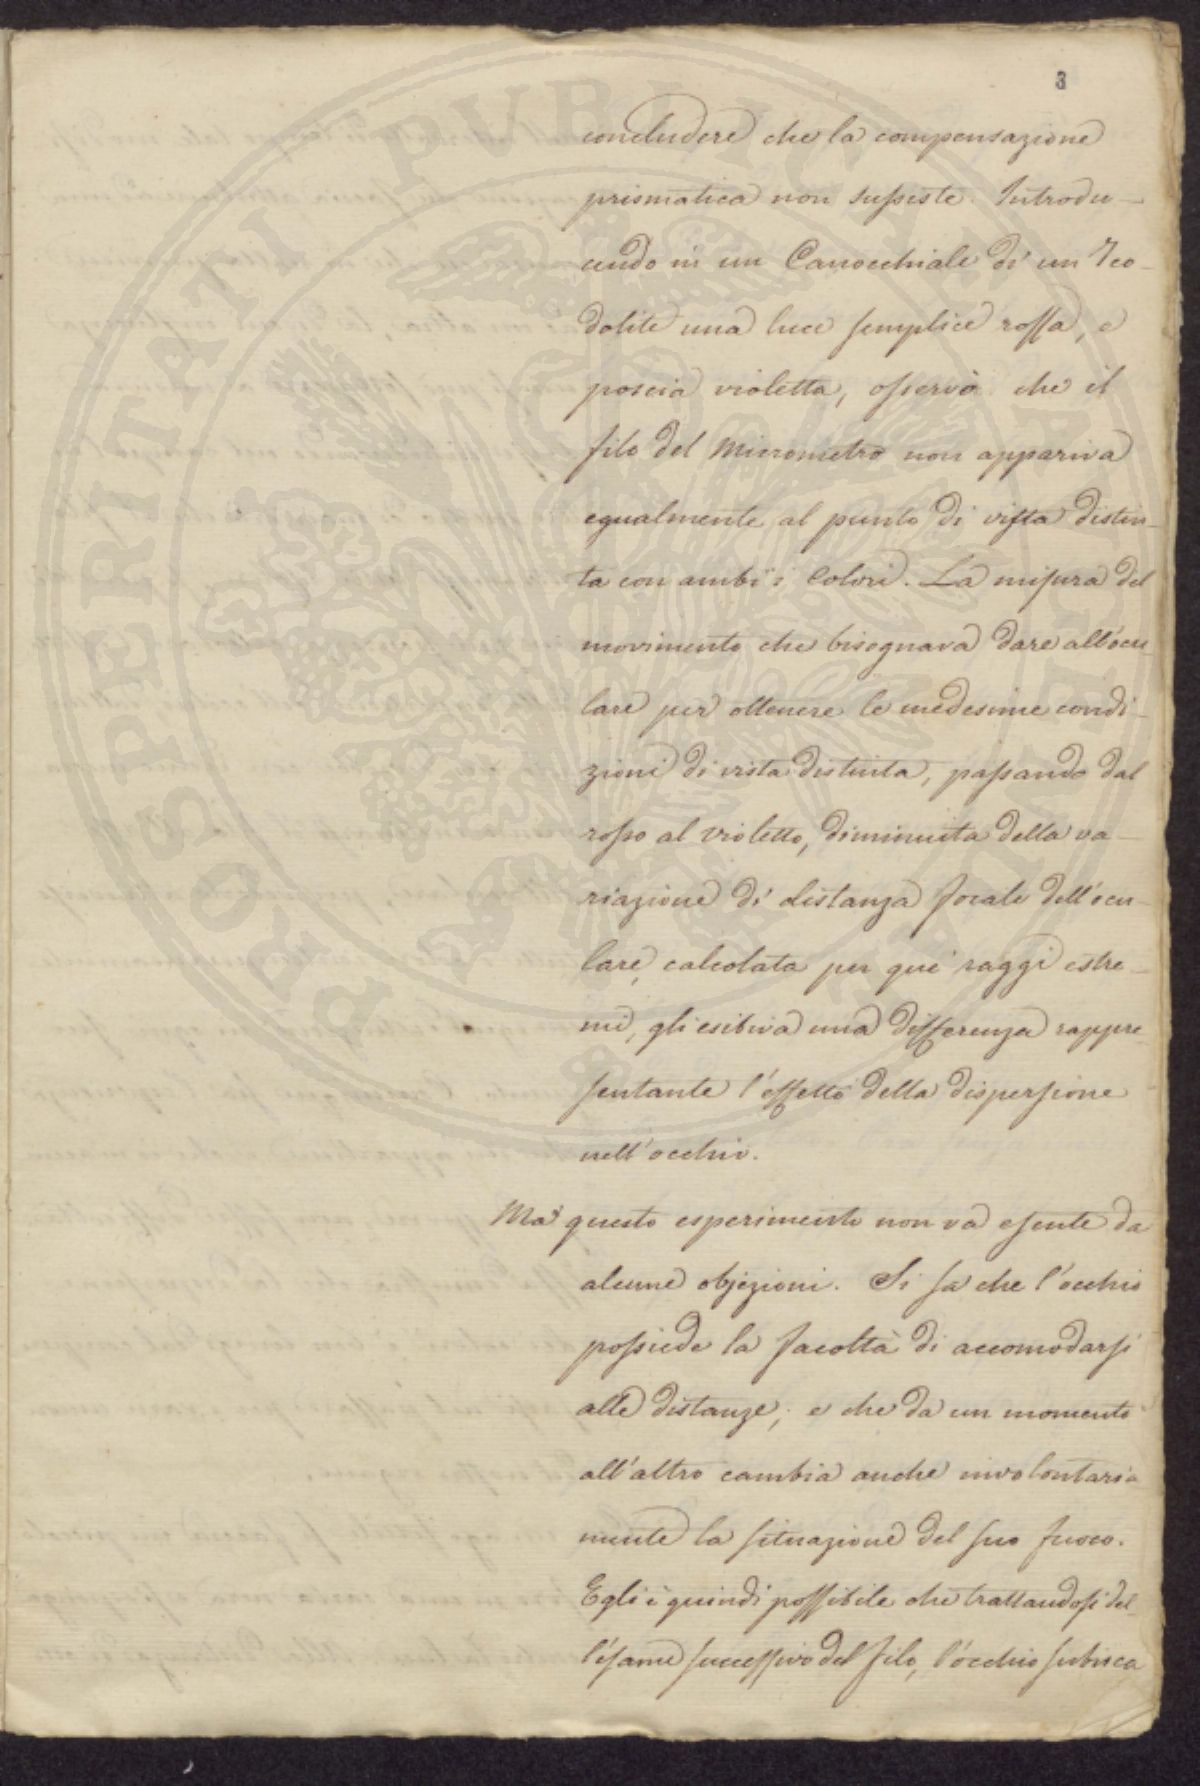 3
concludere che la compensazione
prismatica non sussiste. Introdu-
cendo in un Canocchiale di un Teo-
dolite una luce semplice rossa, e
poscia violetta, osservò che il
filo del Micrometro non appariva
egualmente al punto di vista distin-
ta con ambi i colori. La misura del
movimento che bisognava dare all'ocu-
lare per ottenere le medesime condi-
zioni di vista distinta, passando dal
rosso al violetto, diminuita della va-
riazione di distanza focale dell'ocu-
lare, calcolata per que' raggi estre-
mi, gli esibiva una differenza rappre-
sentante l'effetto della dispersione
nell'occhio.
Ma questo esperimento non va esente da
alcune objezioni. Si sa che l'occhio
possiede la facoltà di accomodarsi
alle distanze; e che da un momento
all'altro cambia anche involontaria-
mente la situazione del suo fuoco.
Egli è quindi possibile che trattandosi del-
l'esame successivo del filo, l'occhio subisca
PROSPERITATI PUBLICAE